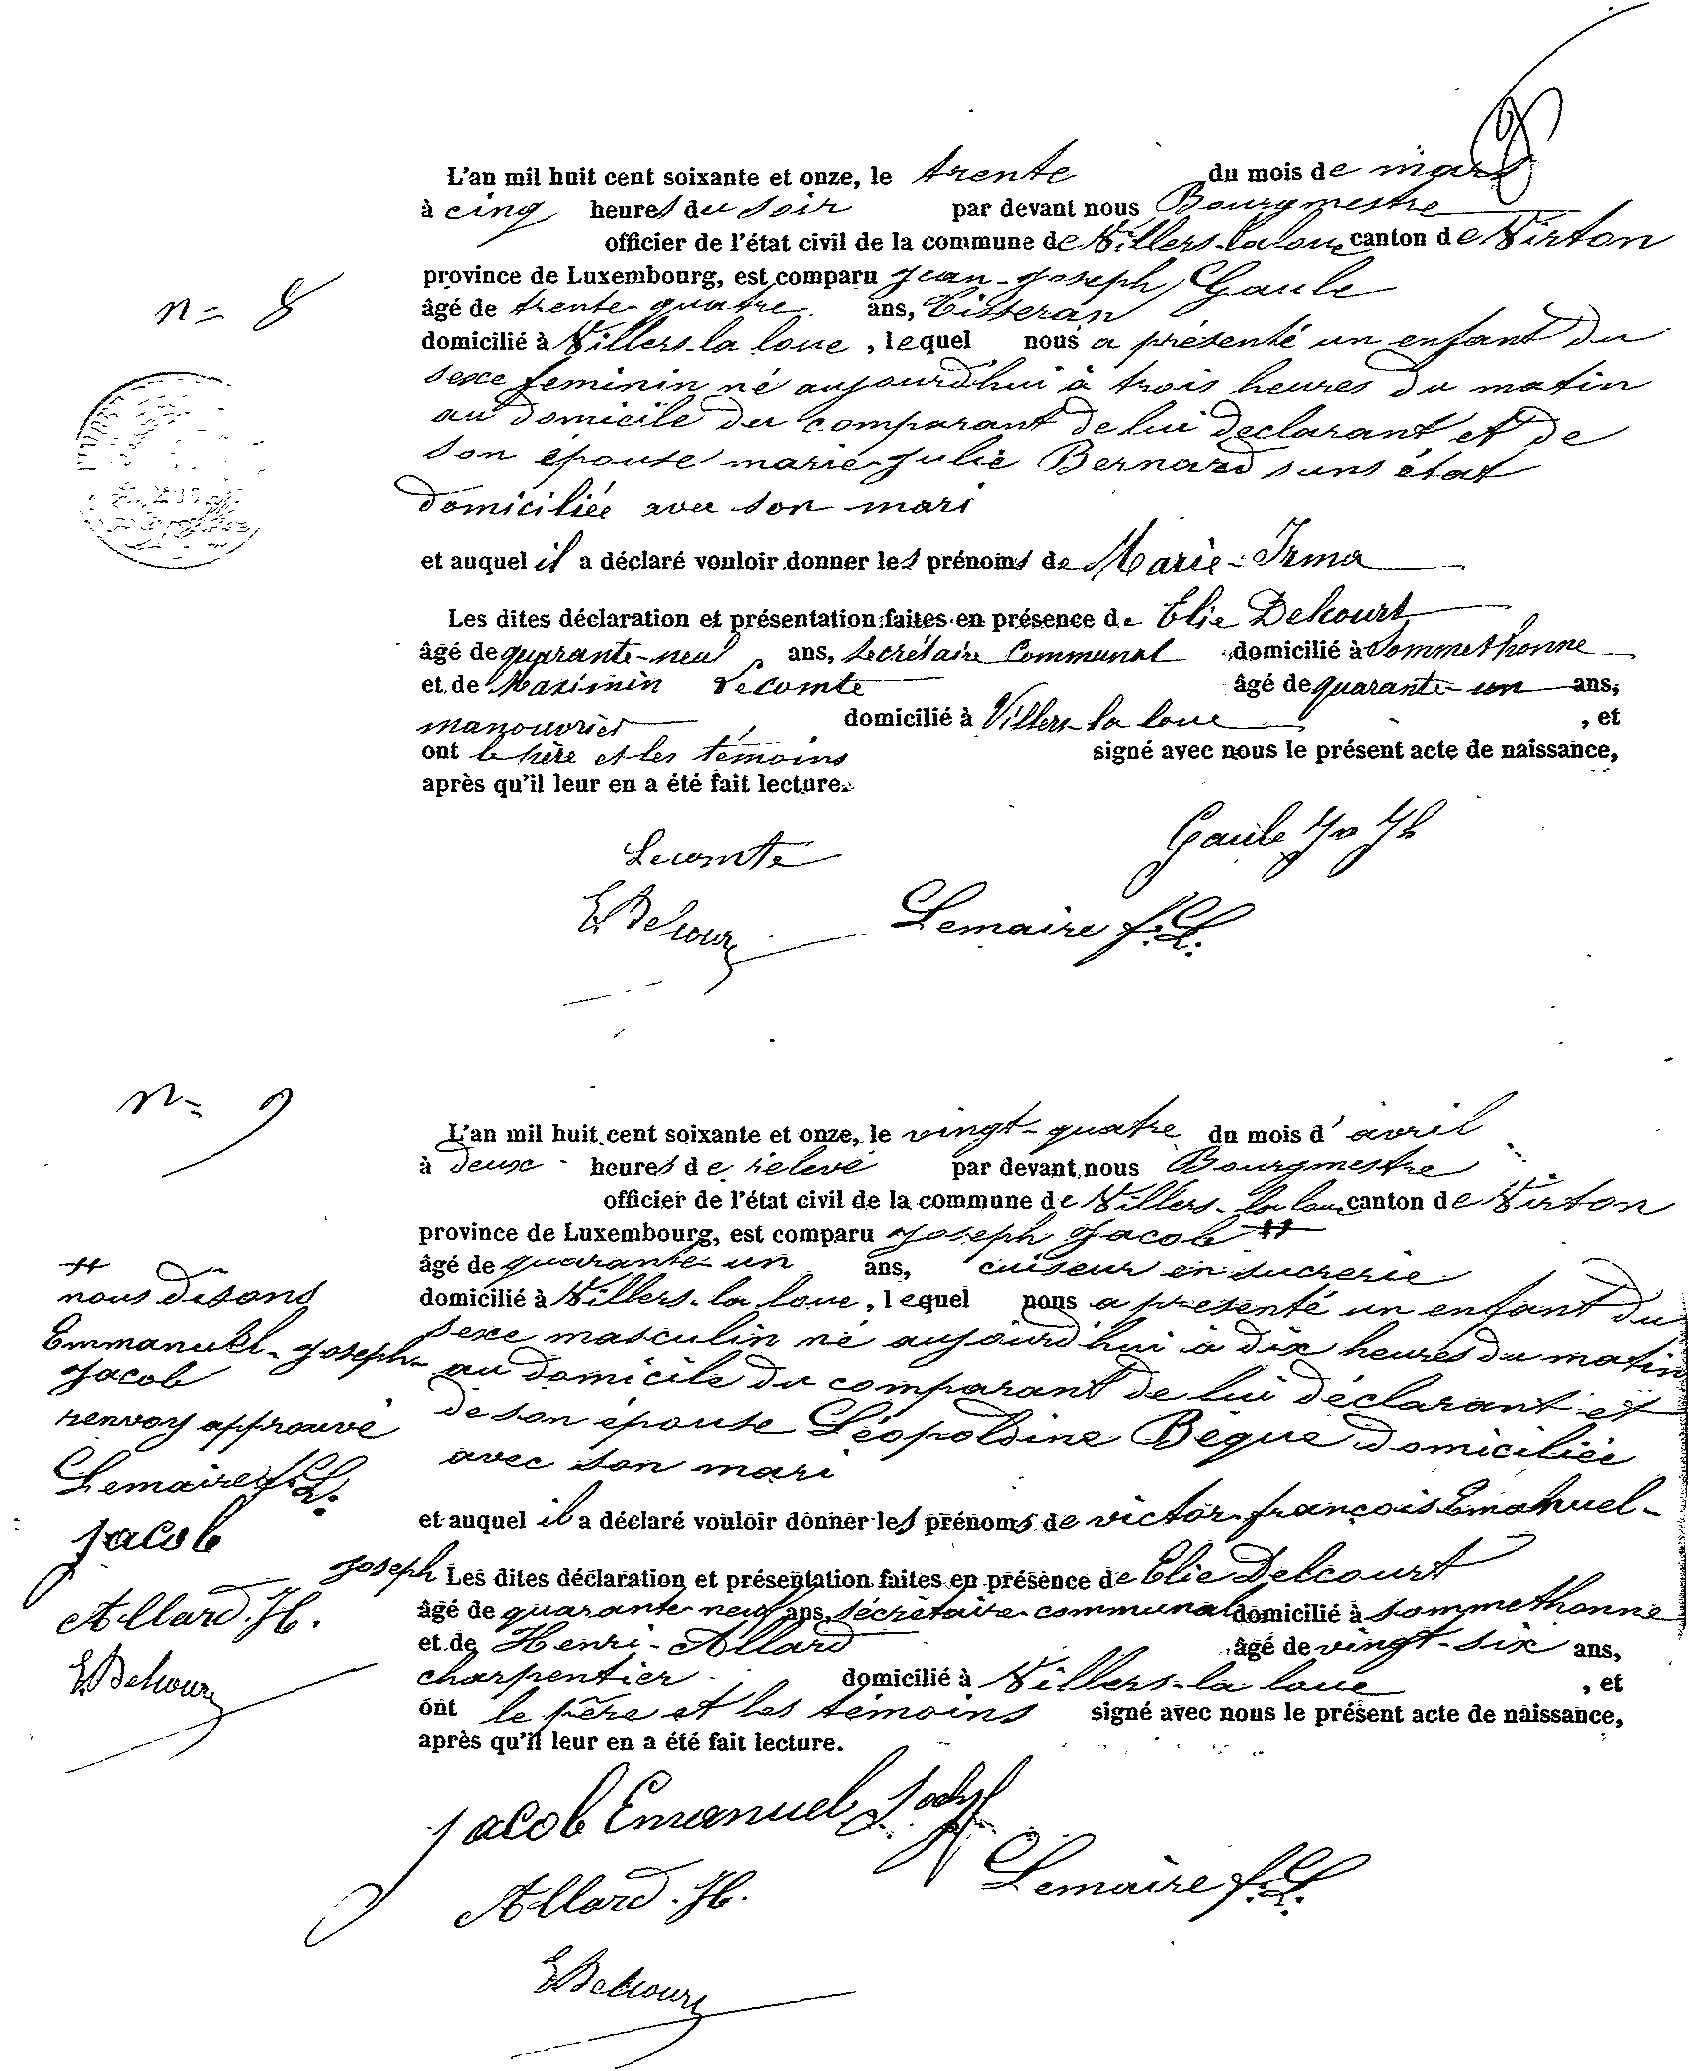 L'an mil huit cent soixante et onze, le trente du mois de mars
à cinq heures du soir par devant nous Bourgmestre
officier de l'état civil de la commune de Villers-la loue canton de Virton
province de Luxembourg, est comparu Jean-Joseph Gaule
n= 8
âgé de trente-quatre ans, Tisseran
domicilié à Villers-la loue, lequel nous a présenté un enfant du
sexe feminin né aujourd'hui à trois heures du matin
au domicile du comparant de lui declarant et de
son épouse marie-julie Bernard sans état
domiciliée avec son mari
et auquel il a déclaré vouloir donner les prénoms de Marie-Irma
Les dites déclaration et présentation faites en présence de Elie Delcourt
âgé de quarante-neuf ans, secrétaire communal domicilié à Sommethonne
et de Maximin Lecomte âgé de quarante-un ans,
manouvrier domicilié à Villers-la loue, et
ont le père et les témoins signé avec nous le présent acte de naissance,
après qu'il leur en a été fait lecture.
Gaule Jn Jh
Lecomte
E. Delcourt Lemaire f.L.
n= 9
L'an mil huit cent soixante et onze, le vingt-quatre du mois d'avril
à deux heures de relevé par devant nous Bourgmestre
officier de l'état civil de la commune de Villers-la loue canton de Virton
province de Luxembourg, est comparu Joseph Jacob #
âgé de quarante-un ans, cuiseur en sucrerie
domicilié à Villers-la loue, lequel nous a presenté un enfant du
sexe masculin né aujourd'hui à dix heures du matin
au domicile du comparant de lui déclarant et
de son épouse Léopoldine Bègue domiciliée
avec son mari
et auquel il a déclaré vouloir donner les prénoms de victor-françois Emanuel-
Joseph Les dites déclaration et présentation faites en présence de Elie Delcourt
âgé de quarante-neuf ans, sécrètaire-communal domicilié à Sommethonne
et de Henri-Allard âgé de vingt-six ans,
charpentier domicilié à Villers-la loue, et
ont le père et les témoins signé avec nous le présent acte de naissance,
après qu'il leur en a été fait lecture.
#
nous disons
Emmanuel-Joseph-
Jacob
renvoy approuvé
Lemaire f.L.
Jacob
Allard. H.
E. Delcourt
Jacob Emanuel Joseph
Lemaire f.L.
Allard. H.
E. Delcourt